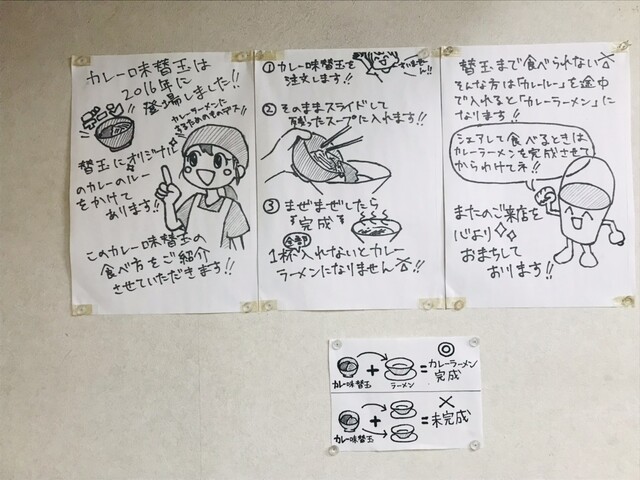 カレー味替玉は
2016年に
登場しました!!
カレーラーメンに
するためのものデス!!
替玉にオリジナル
のカレーのルー
をかけて
あります!!
このカレー味替玉の
食べ方をご紹介
させていただきます!!
① カレー味替玉を
注文します!!
すいませーん!!
② そのままスライドして
残ったスープに入れます!!
③ まぜまぜしたら
完成
全部
1杯入れないとカレー
ラーメンになりません!!
替玉まで食べられない
そんな方は「カレールー」を途中
で入れると「カレーラーメン」に
なります!!
シェアして食べるときは
カレーラーメンを完成させて
からわけてネ!!
またのご来店を
心より
おまちして
おります!!
カレー味替玉 + ラーメン = ◎ カレーラーメン
完成
カレー味替玉 + = × 未完成